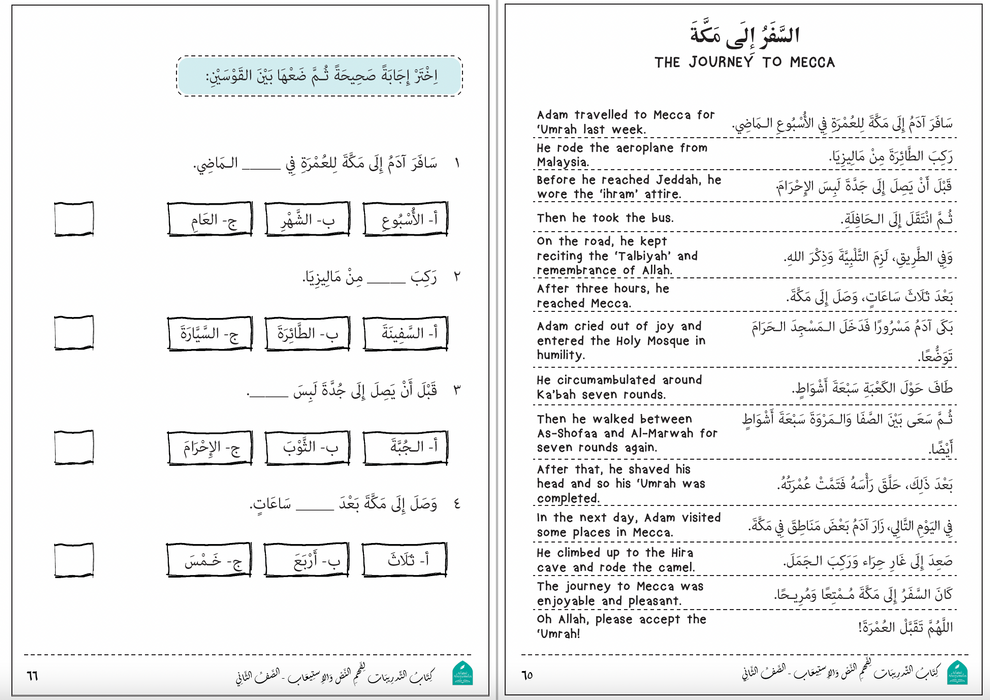 السَّفَرُ إِلَى مَكَّةَ
THE JOURNEY TO MECCA
Adam travelled to Mecca for
'Umrah last week.
سَافَرَ آدَمُ إِلَى مَكَّةَ لِلعُمْرَةِ فِي الأُسْبُوعِ الـمَاضِي.
He rode the aeroplane from
Malaysia.
رَكِبَ الطَّائِرَةَ مِنْ مَالِيزِيَا.
Before he reached Jeddah, he
wore the 'ihram' attire.
قَبْلَ أَنْ يَصِلَ إِلَى جَدَّةَ لَبِسَ الإِحْرَامَ.
Then he took the bus.
ثُـمَّ انْتَقَلَ إِلَى الـحَافِلَةِ.
On the road, he kept
reciting the 'Talbiyah' and
remembrance of Allah.
وَفِي الطَّرِيقِ، لَزِمَ التَّلْبِيَّةَ وَذِكْرَ اللهِ.
After three hours, he
reached Mecca.
بَعْدَ ثَلَاثَ سَاعَاتٍ، وَصَلَ إِلَى مَكَّةَ.
Adam cried out of joy and
entered the Holy Mosque in
humility.
بَكَى آدَمُ مَسْرُورًا فَدَخَلَ الـمَسْجِدَ الـحَرَامَ
تَوَضُّعًا.
He circumambulated around
Ka'bah seven rounds.
طَافَ حَوْلَ الكَعْبَةِ سَبْعَةَ أَشْوَاطٍ.
Then he walked between
As-Shofaa and Al-Marwah for
seven rounds again.
ثُـمَّ سَعَى بَيْنَ الصَّفَا وَالـمَرْوَةَ سَبْعَةَ أَشْوَاطٍ
أَيْضًا.
After that, he shaved his
head and so his 'Umrah was
completed.
بَعْدَ ذَلِكَ، حَلَّقَ رَأْسَهُ فَتَمَّتْ عُمْرَتُهُ.
In the next day, Adam visited
some places in Mecca.
فِي اليَوْمِ التَّالِي، زَارَ آدَمُ بَعْضَ مَنَاطِقَ فِي مَكَّةَ.
He climbed up to the Hira
cave and rode the camel.
صَعِدَ إِلَى غَارِ حِرَاء وَرَكِبَ الـجَمَلَ.
The journey to Mecca was
enjoyable and pleasant.
كَانَ السَّفَرُ إِلَى مَكَّةَ مُـمْتِعًا وَمُرِيـحًا.
Oh Allah, please accept the
'Umrah!
اللَّهُمَّ تَقَبَّلْ العُمْرَةَ!
كِتَابُ التَّدْرِيبَات لِفَهْمِ النَّصِّ وَالاِسْتِيعَابِ - الصَّفُّ الثَّانِي
٦٥
اِخْتَرْ إِجَابَةً صَحِيحَةً ثُـمَّ ضَعْهَا بَيْنَ القَوْسَيْنِ:
١ سَافَرَ آدَمُ إِلَى مَكَّةَ لِلعُمْرَةِ فِي _____ الـمَاضِي.
أ- الأُسْبُوعِ ب- الشَّهْرِ ج- العَامِ
٢ رَكِبَ _____ مِنْ مَالِيزِيَا.
أ- السَّفِينَةَ ب- الطَّائِرَةَ ج- السَّيَّارَةَ
٣ قَبْلَ أَنْ يَصِلَ إِلَى جُدَّةَ لَبِسَ _____.
أ- الـجُبَّةَ ب- الثَّوْبَ ج- الإِحْرَامَ
٤ وَصَلَ إِلَى مَكَّةَ بَعْدَ _____ سَاعَاتٍ.
أ- ثَلَاثَ ب- أَرْبَعَ ج- خَـمْسَ
كِتَابُ التَّدْرِيبَات لِفَهْمِ النَّصِّ وَالاِسْتِيعَابِ - الصَّفُّ الثَّانِي
٦٦